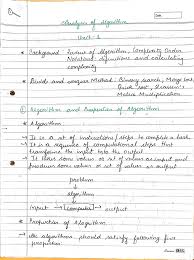 Date
Analysis of Algorithm
Unit-1
* Background: Review of Algorithm, Complexity Order
Notations: definitions and calculating
complexity
* Divide and conquer Method: Binary Search, Merge Sort,
Quick Sort, Strassen's
Matrix Multiplication
Algorithm and Properties of Algorithm
* Algorithm
It is a set of instructions/steps to complete a task
It is a sequence of computational steps that
transforms the input into the output
It takes some values or set of values as input and
produces some values or set of values as output
problem
algorithm
input → computer → output
* Properties of Algorithm
An algorithm should satisfy following
properties